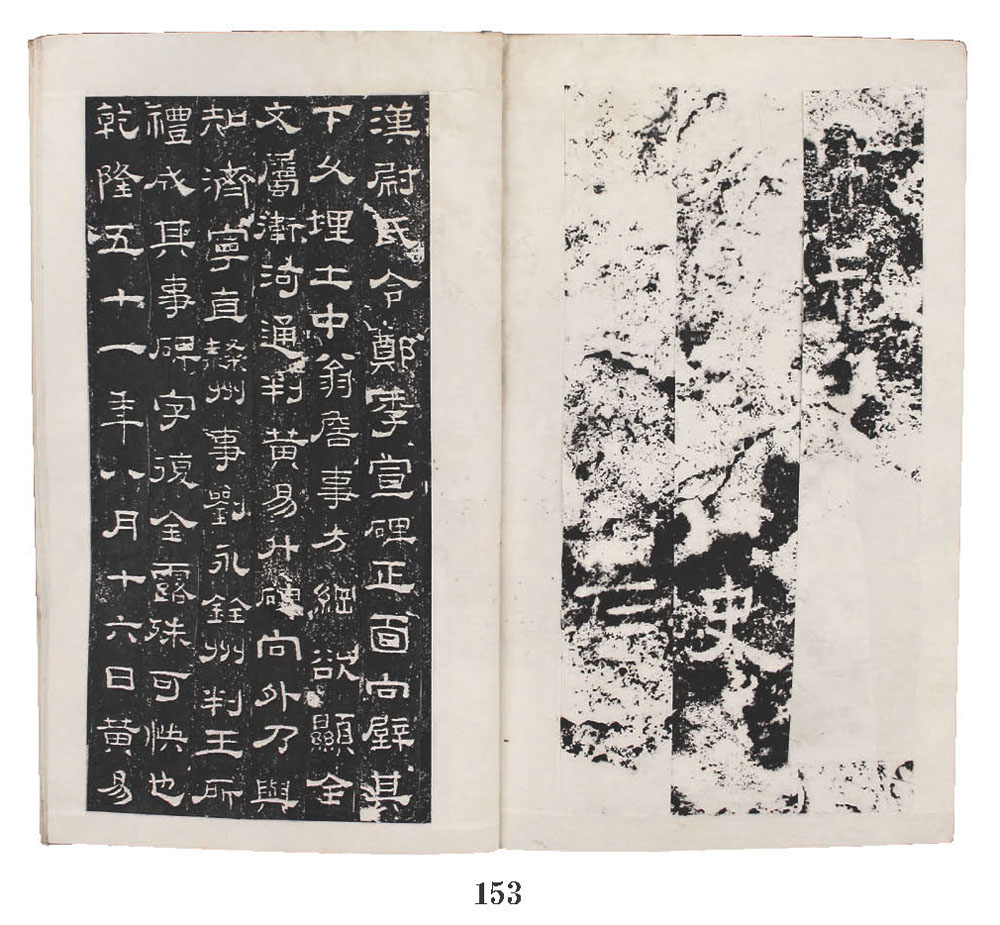 史
漢尉氏令鄭季宣碑正面向壁其
下久埋土中翁詹事方綱欲顯全
文屬衛河通判黃易升碑向外乃與
知濟寧直隸州事劉永銓州判王所
禮成其事碑字復全露殊可快也
乾隆五十一年八月十六日黃易
153